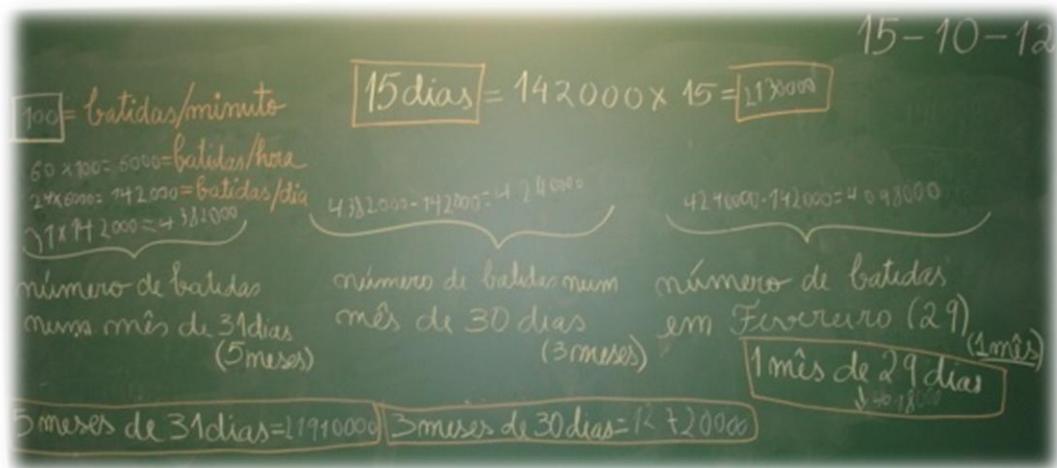 15-10-12
15 dias = 142000 x 15 = 2130000
100 = batidas/minuto
60 x 100 = 6000 = batidas/hora
24x6000 = 142000 = batidas/dia
31x142000 = 4382000
4382000-142000=4240000
4240000-142000=4098000
número de batidas
numa mês de 31 dias
(5 meses)
número de batidas num
mês de 30 dias
(3 meses)
número de batidas
em Fevereiro (29)
(1 mês)
1 mês de 29 dias
5 meses de 31 dias = 21910000
3 meses de 30 dias = 12720000